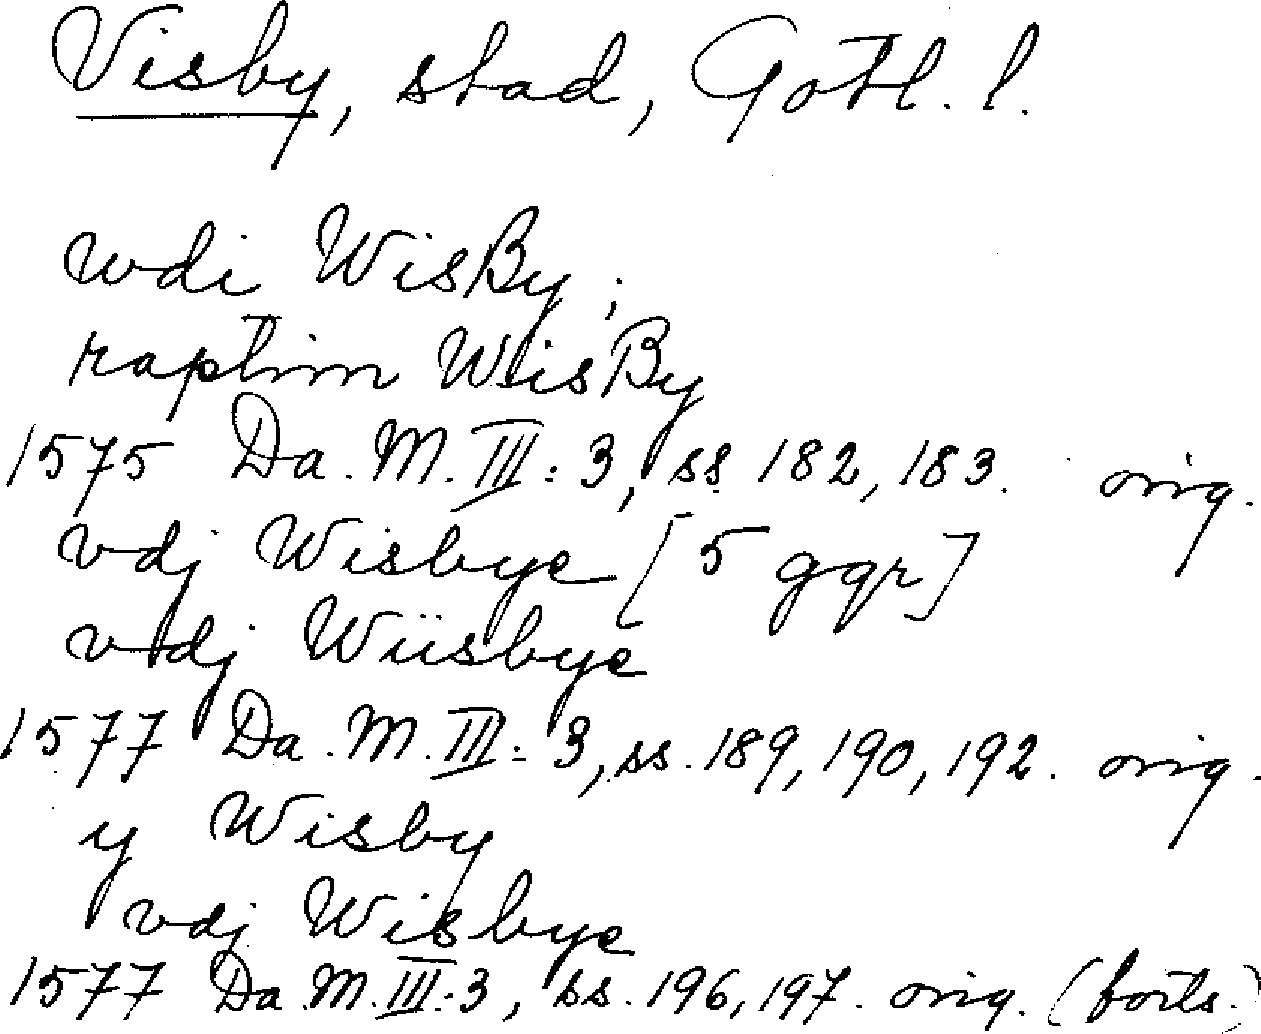 Visby, stad, Gotl. l.
wdi WisBy;
raptim WiisBy
1575 Da. M. III: 3, ss 182, 183. orig.
vdj Wisbye [5 ggr]
vdj Wiisbye
1577 Da. M. III: 3, ss. 189, 190, 192. orig.
y Wisby
vdj Wisbye
1577 Da M. III: 3, ss. 196, 197. orig. (forts.)